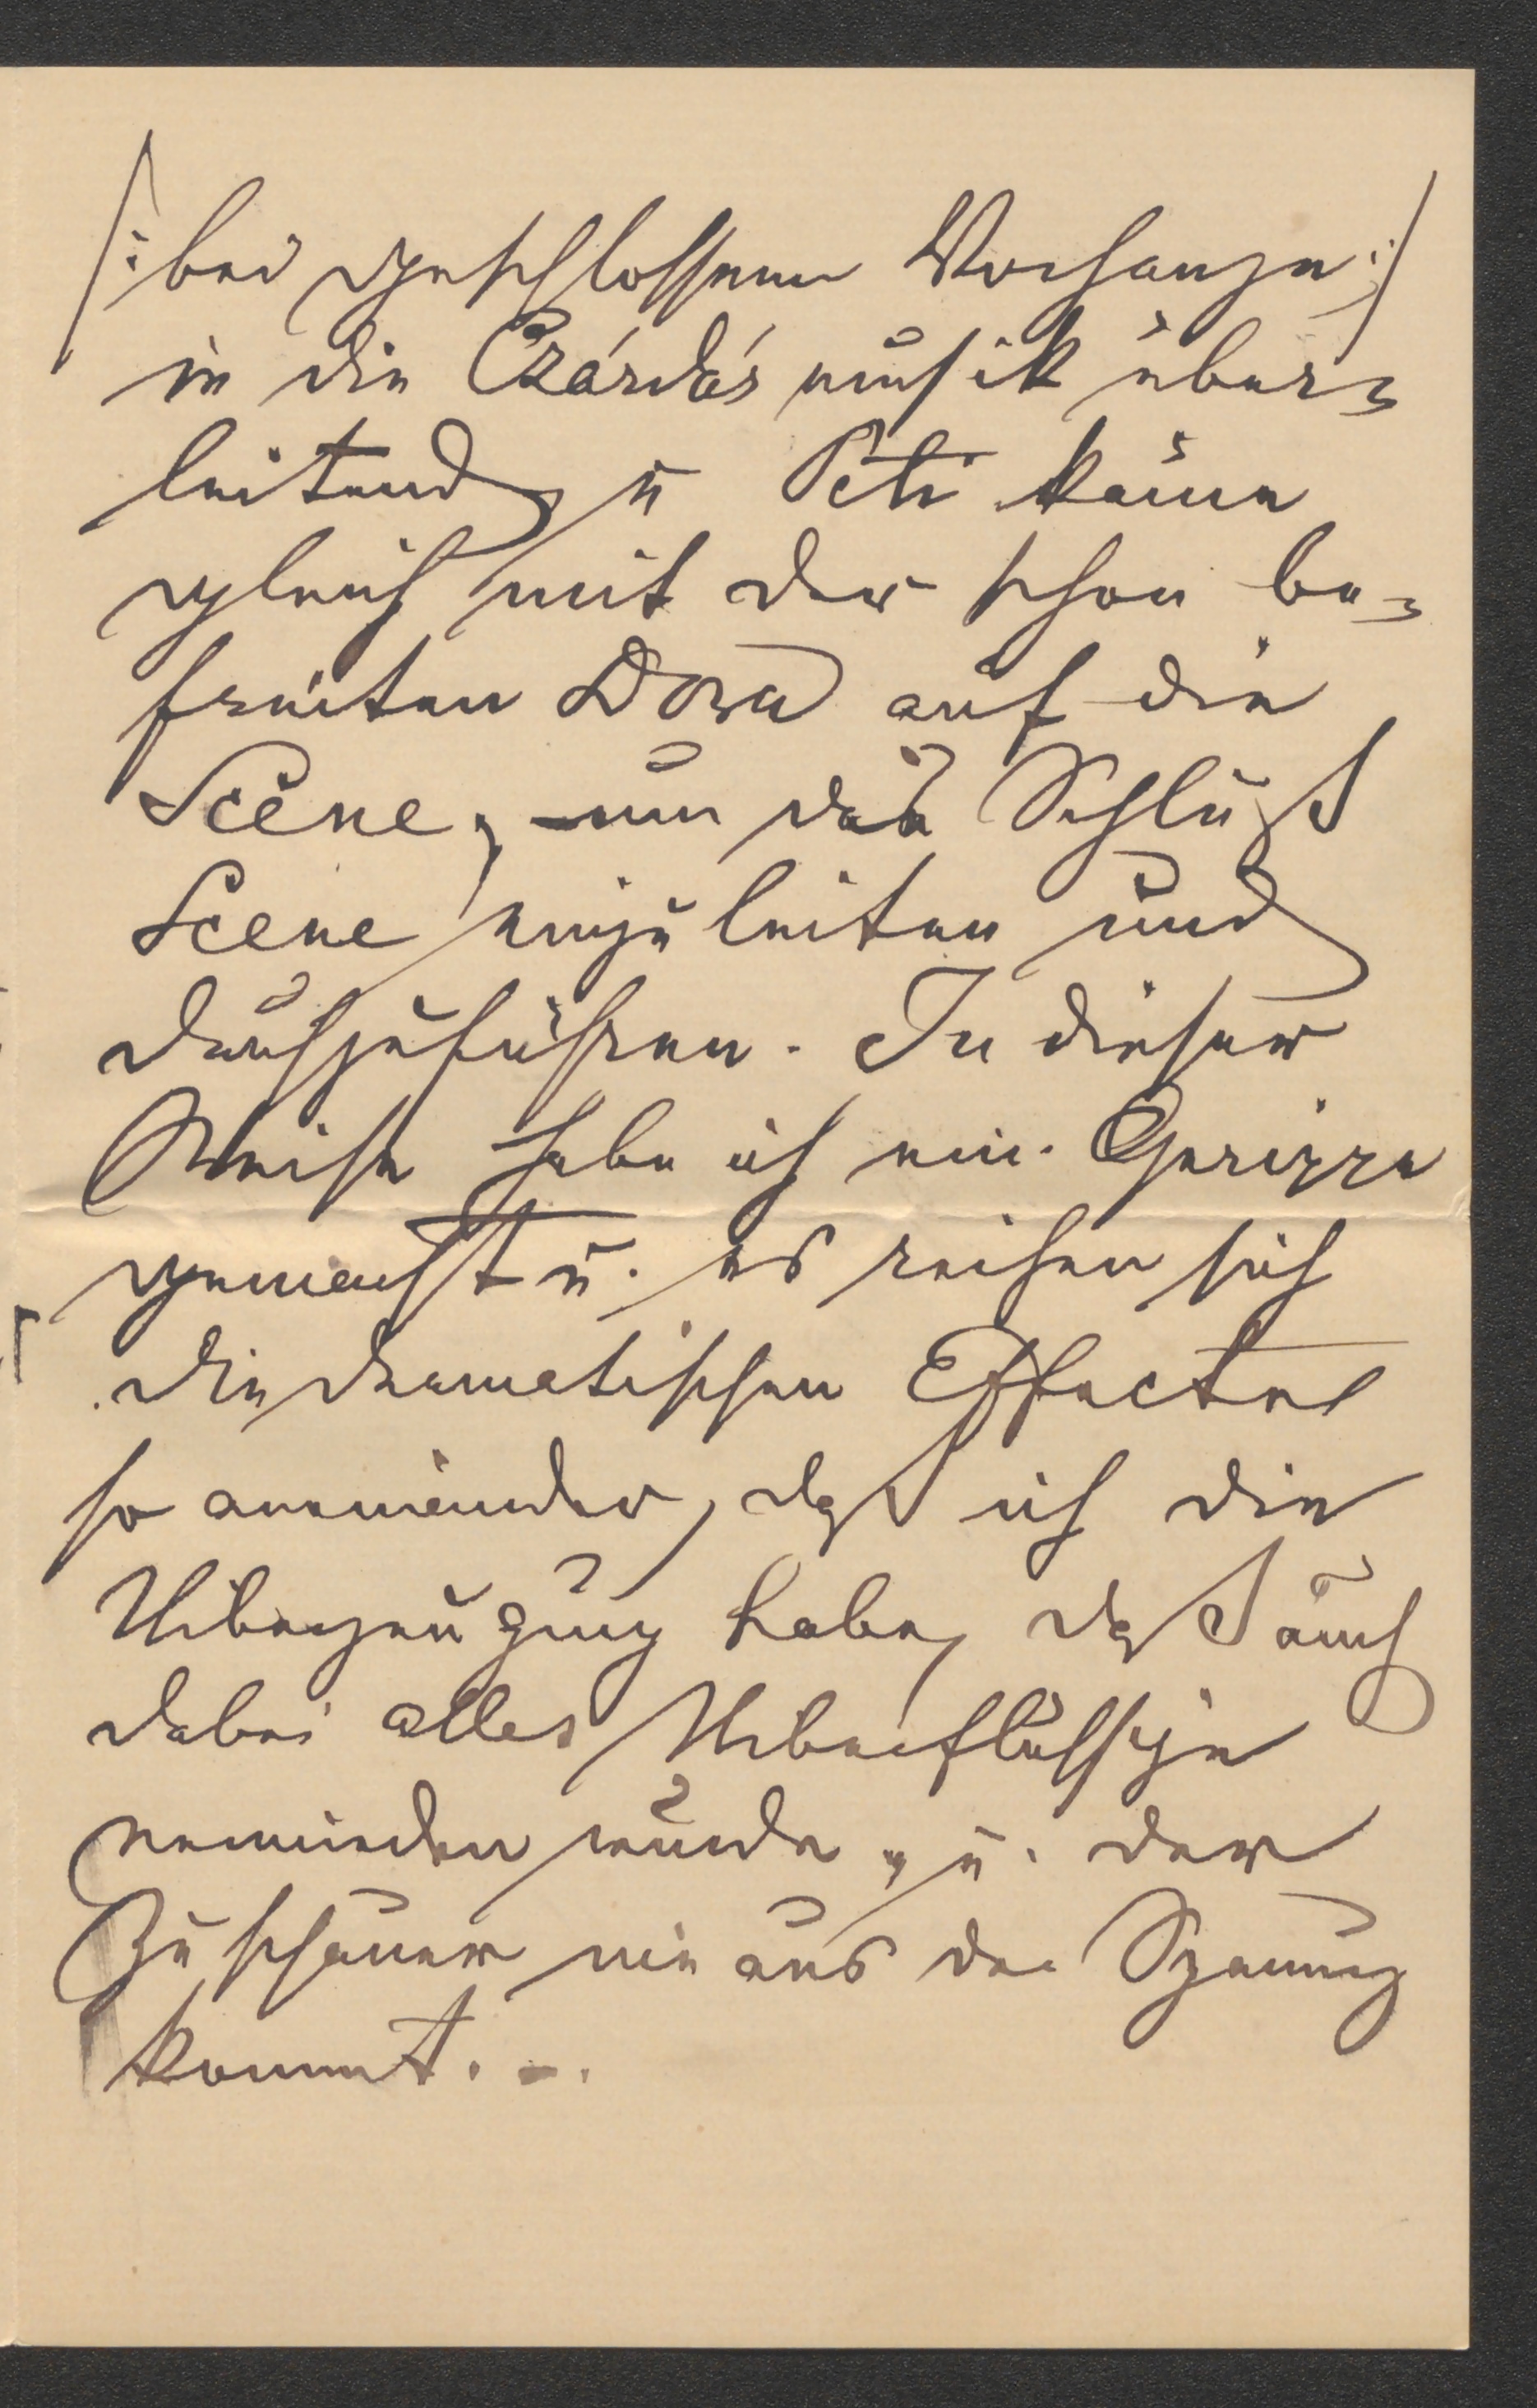 /: bei geschlossenem Vorhange :/
in die Czárdás musik über=
leitend, u Peti käme
gleich mit der schon be=
freiten Dora auf die
Scene, um das Schluß
Scene einzuleiten und
durchzuführen. In dieser
Weise habe ich ein Gerippe
gemacht u. es reihen sich
die dramatischen Effecte
so aneinander, daß ich die
Uiberzeugung habe, daß auch
dabei alles Uiberflüssige
vermieden würde, u. der
Zuschauer nie aus der Spannung
kommt. –.